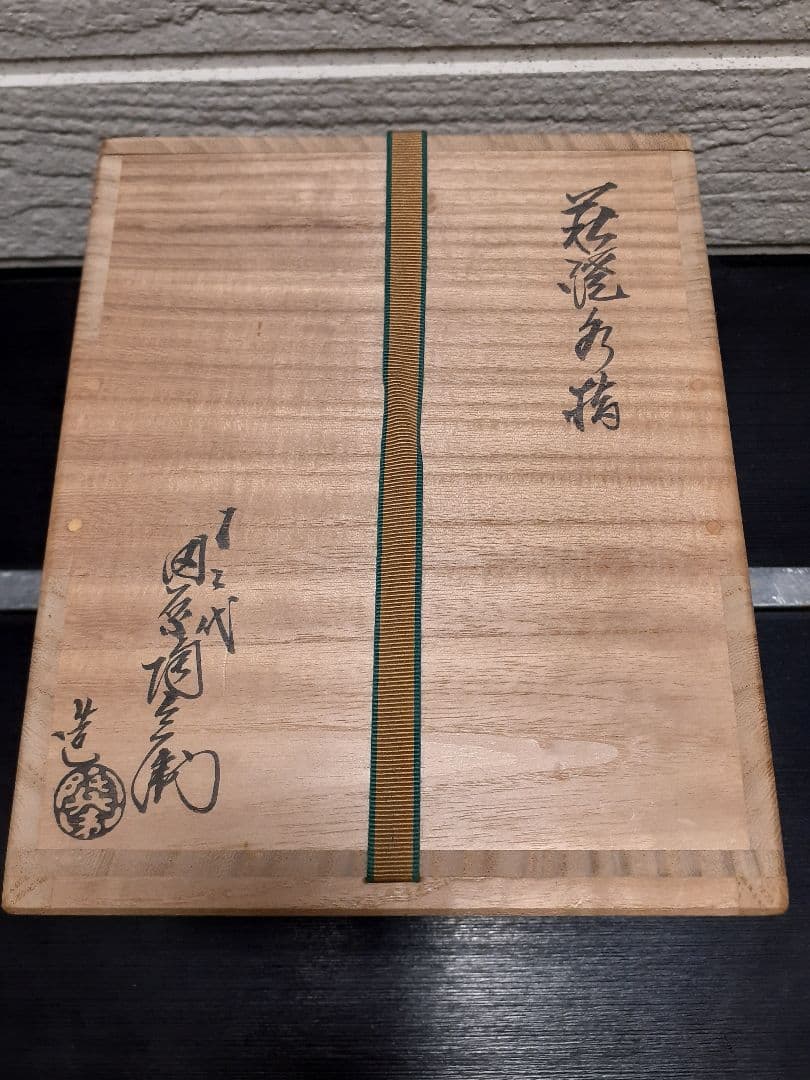 萩焼水指
十二代
田原陶兵衛
造